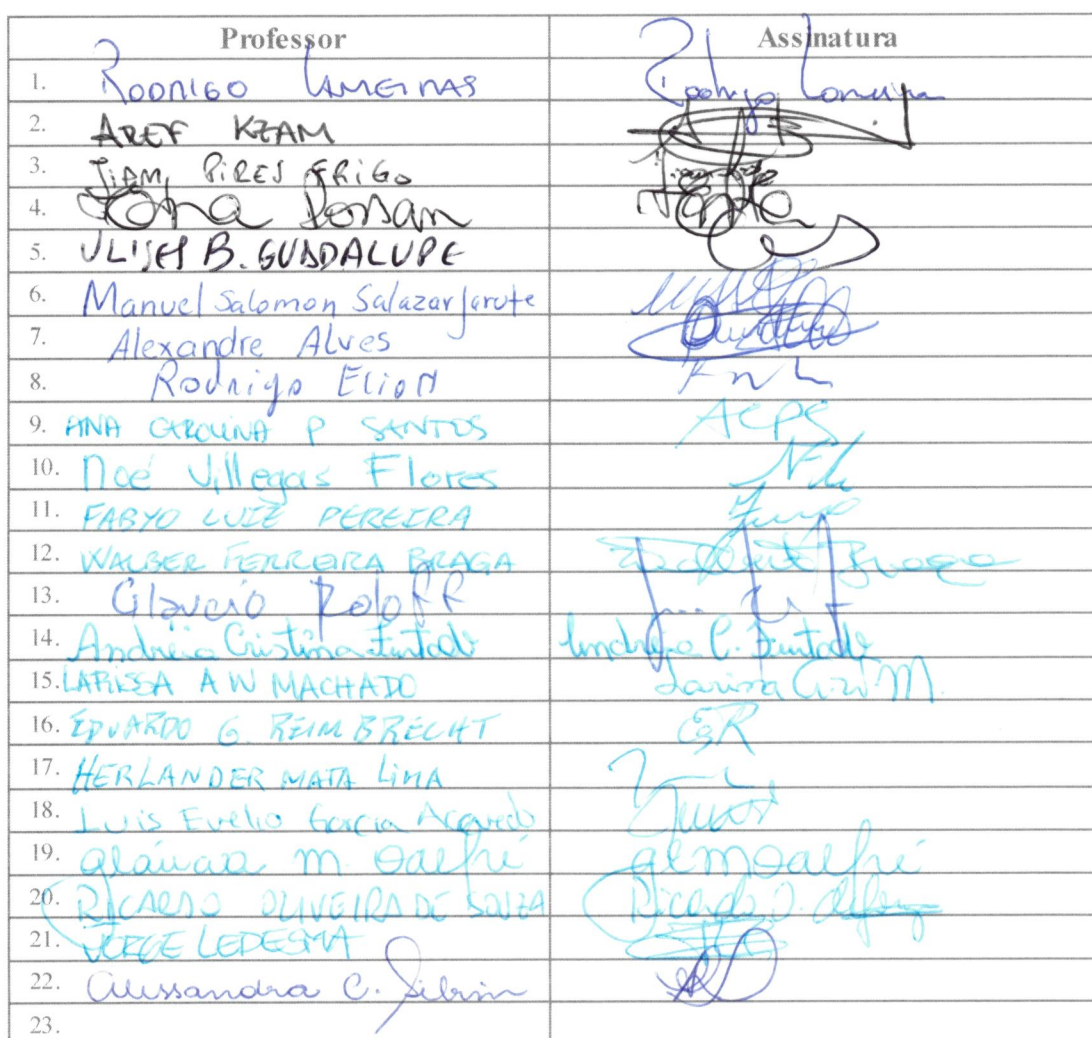 Professor Assinatura
1. RODRIGO LAMEIRAS Rodrigo Lameira
2. AREF KZAM
3. JIAM PIRES FRIGO
4.
5. ULISES B. GUADALUPE
6. Manuel Salomon Salazar Jarufe
7. Alexandre Alves
8. Rodrigo Elion
9. ANA CAROLINA P SANTOS ACPS
10. Noé Villegas Flores
11. FABYO LUIZ PEREIRA
12. WALBER FERREIRA BRAGA Braga
13. Glaucio Roloff
14. Andréia Cristina Furtado Andréia C. Furtado
15. LARISSA A W MACHADO Larissa M.
16. EDUARDO G. REIMBRECHT EGR
17. HERLANDER MATA LIMA
18. Luis Evelio Garcia Acevedo
19. Gláucia M. Dalfré GLMDalfré
20. RICARDO OLIVEIRA DE SOUZA Ricardo O.
21. JORGE LEDESMA
22. Alessandra C. Sibim
23.